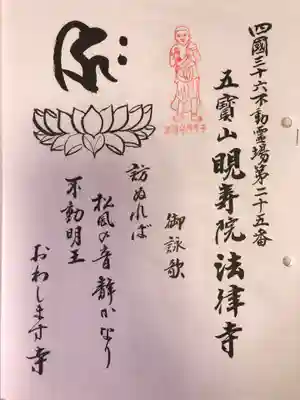 四國三十六不動霊場第二十五番
五寳山 明寿院 法律寺
御詠歌
訪ぬれば
松風の音静かなり
不動明王
おわします寺